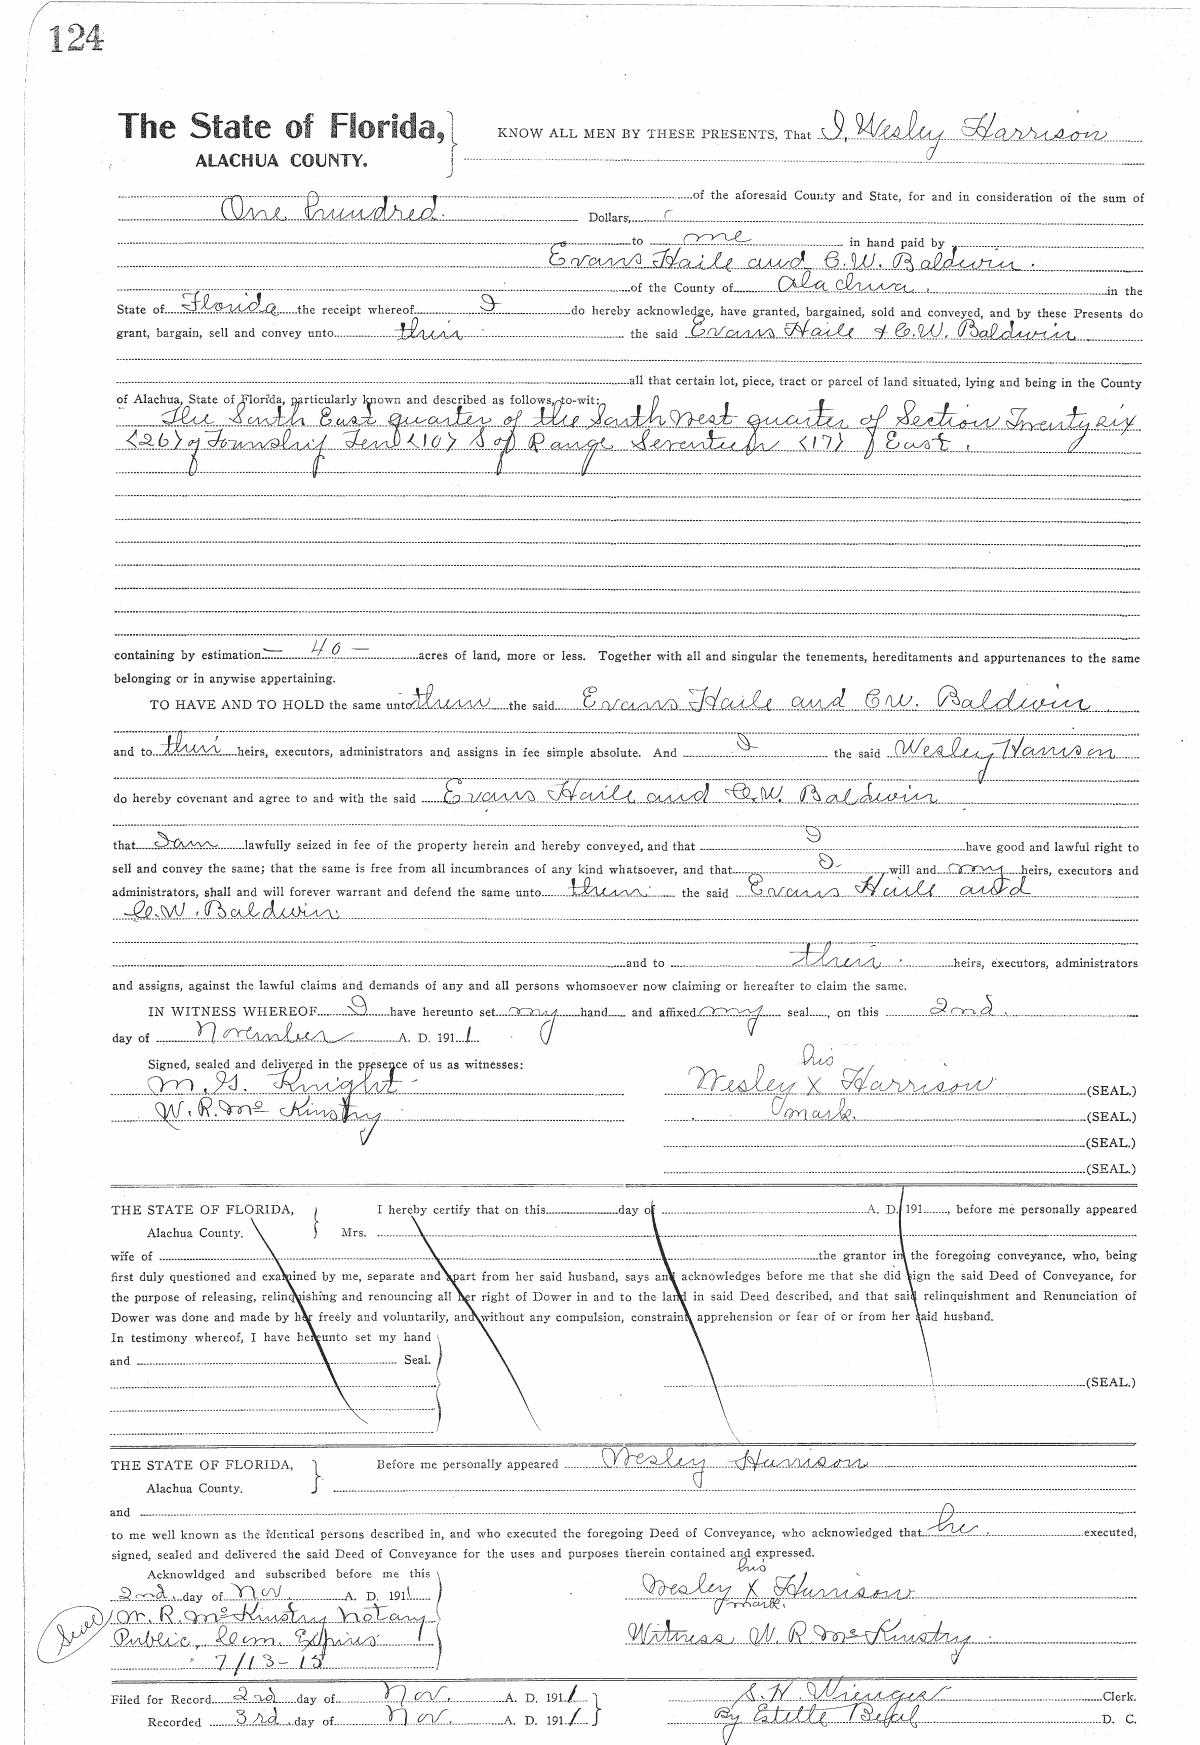 124
The State of Florida, KNOW ALL MEN BY THESE PRESENTS, That I, Wesley Harrison
ALACHUA COUNTY.
of the aforesaid County and State, for and in consideration of the sum of
One hundred Dollars,
to me in hand paid by
Evans Haile and C.W. Baldwin.
of the County of Alachua, in the
State of Florida the receipt whereof I do hereby acknowledge, have granted, bargained, sold and conveyed, and by these Presents do
grant, bargain, sell and convey unto their the said Evans Haile & C.W. Baldwin
all that certain lot, piece, tract or parcel of land situated, lying and being in the County
of Alachua, State of Florida, particularly known and described as follows, to-wit:
The South East quarter of the South West quarter of Section Twenty six
<26> of Township Ten <10> S of Range Seventeen <17> East.
containing by estimation — 40 — acres of land, more or less. Together with all and singular the tenements, hereditaments and appurtenances to the same
belonging or in anywise appertaining.
TO HAVE AND TO HOLD the same unto them the said Evans Haile and C.W. Baldwin
and to their heirs, executors, administrators and assigns in fee simple absolute. And I the said Wesley Harrison
do hereby covenant and agree to and with the said Evans Haile and C.W. Baldwin
that I am lawfully seized in fee of the property herein and hereby conveyed, and that I have good and lawful right to
sell and convey the same; that the same is free from all incumbrances of any kind whatsoever, and that I will and my heirs, executors and
administrators, shall and will forever warrant and defend the same unto them the said Evans Haile and
C.W. Baldwin
and to their heirs, executors, administrators
and assigns, against the lawful claims and demands of any and all persons whomsoever now claiming or hereafter to claim the same.
IN WITNESS WHEREOF I have hereunto set my hand and affixed my seal, on this 2nd.
day of November A. D. 1911
Signed, sealed and delivered in the presence of us as witnesses:
his
M. G. Knight Wesley X Harrison (SEAL.)
W. R. McKinstry mark. (SEAL.)
(SEAL.)
(SEAL.)
THE STATE OF FLORIDA, I hereby certify that on this day of A. D. 191, before me personally appeared
Alachua County. Mrs.
wife of the grantor in the foregoing conveyance, who, being
first duly questioned and examined by me, separate and apart from her said husband, says and acknowledges before me that she did sign the said Deed of Conveyance, for
the purpose of releasing, relinquishing and renouncing all her right of Dower in and to the land in said Deed described, and that said relinquishment and Renunciation of
Dower was done and made by her freely and voluntarily, and without any compulsion, constraint apprehension or fear of or from her said husband.
In testimony whereof, I have hereunto set my hand
and Seal.
(SEAL.)
THE STATE OF FLORIDA, Before me personally appeared Wesley Harrison
Alachua County.
and
to me well known as the identical persons described in, and who executed the foregoing Deed of Conveyance, who acknowledged that he executed,
signed, sealed and delivered the said Deed of Conveyance for the uses and purposes therein contained and expressed.
Acknowldged and subscribed before me this his
2nd. day of Nov. A. D. 1911 Wesley X Harrison
mark.
Seal W. R. McKinstry Notary
Public, Com. Expires Witness W. R. McKinstry
7/13-15
Filed for Record 2nd day of Nov. A. D. 1911 S. H. Wienges Clerk.
Recorded 3rd. day of Nov. A. D. 1911 By Estelle D. C.